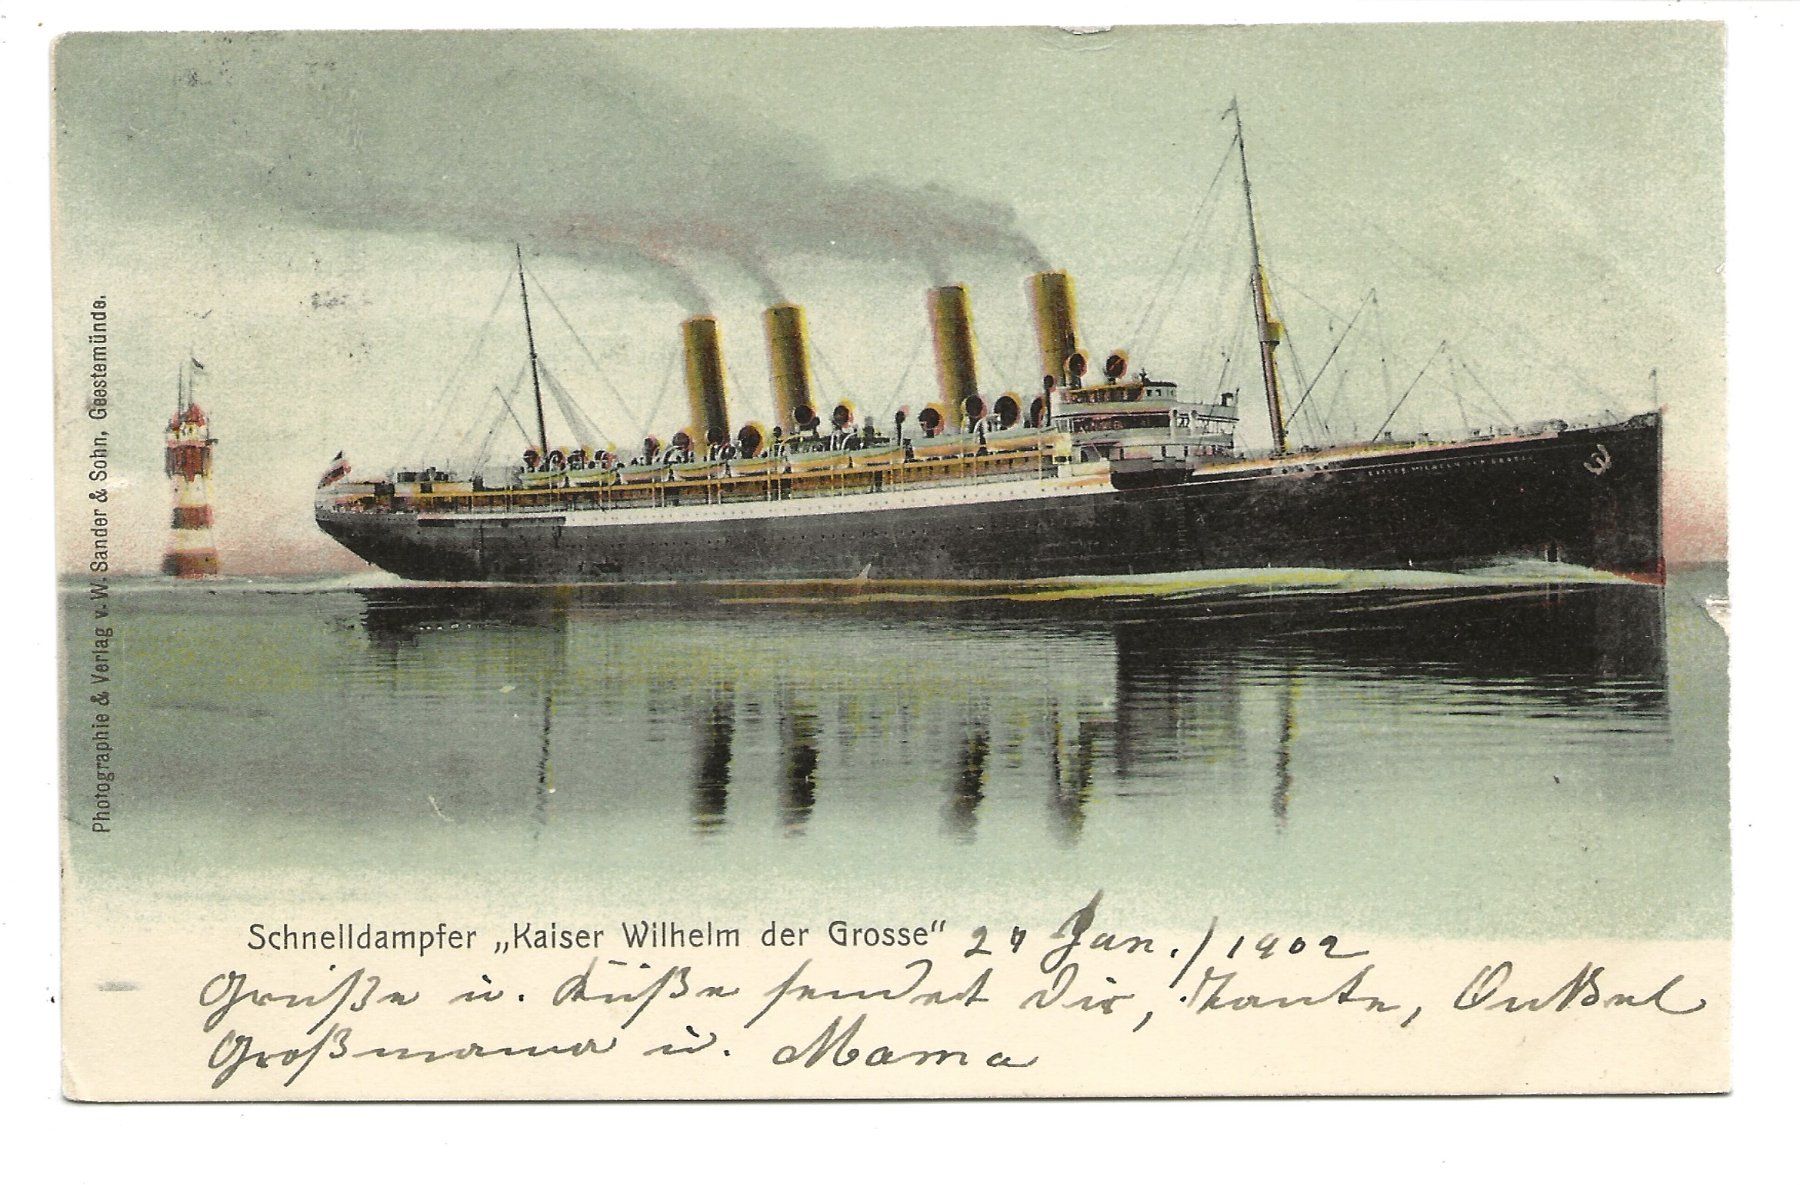 Photographie & Verlag v. W. Sander & Sohn, Geestemünde.
Schnelldampfer „Kaiser Wilhelm der Grosse“ 27 Jan. / 1902
Grüße u. Küße sendet Dir, Tante, Onkel
Großmama u. Mama